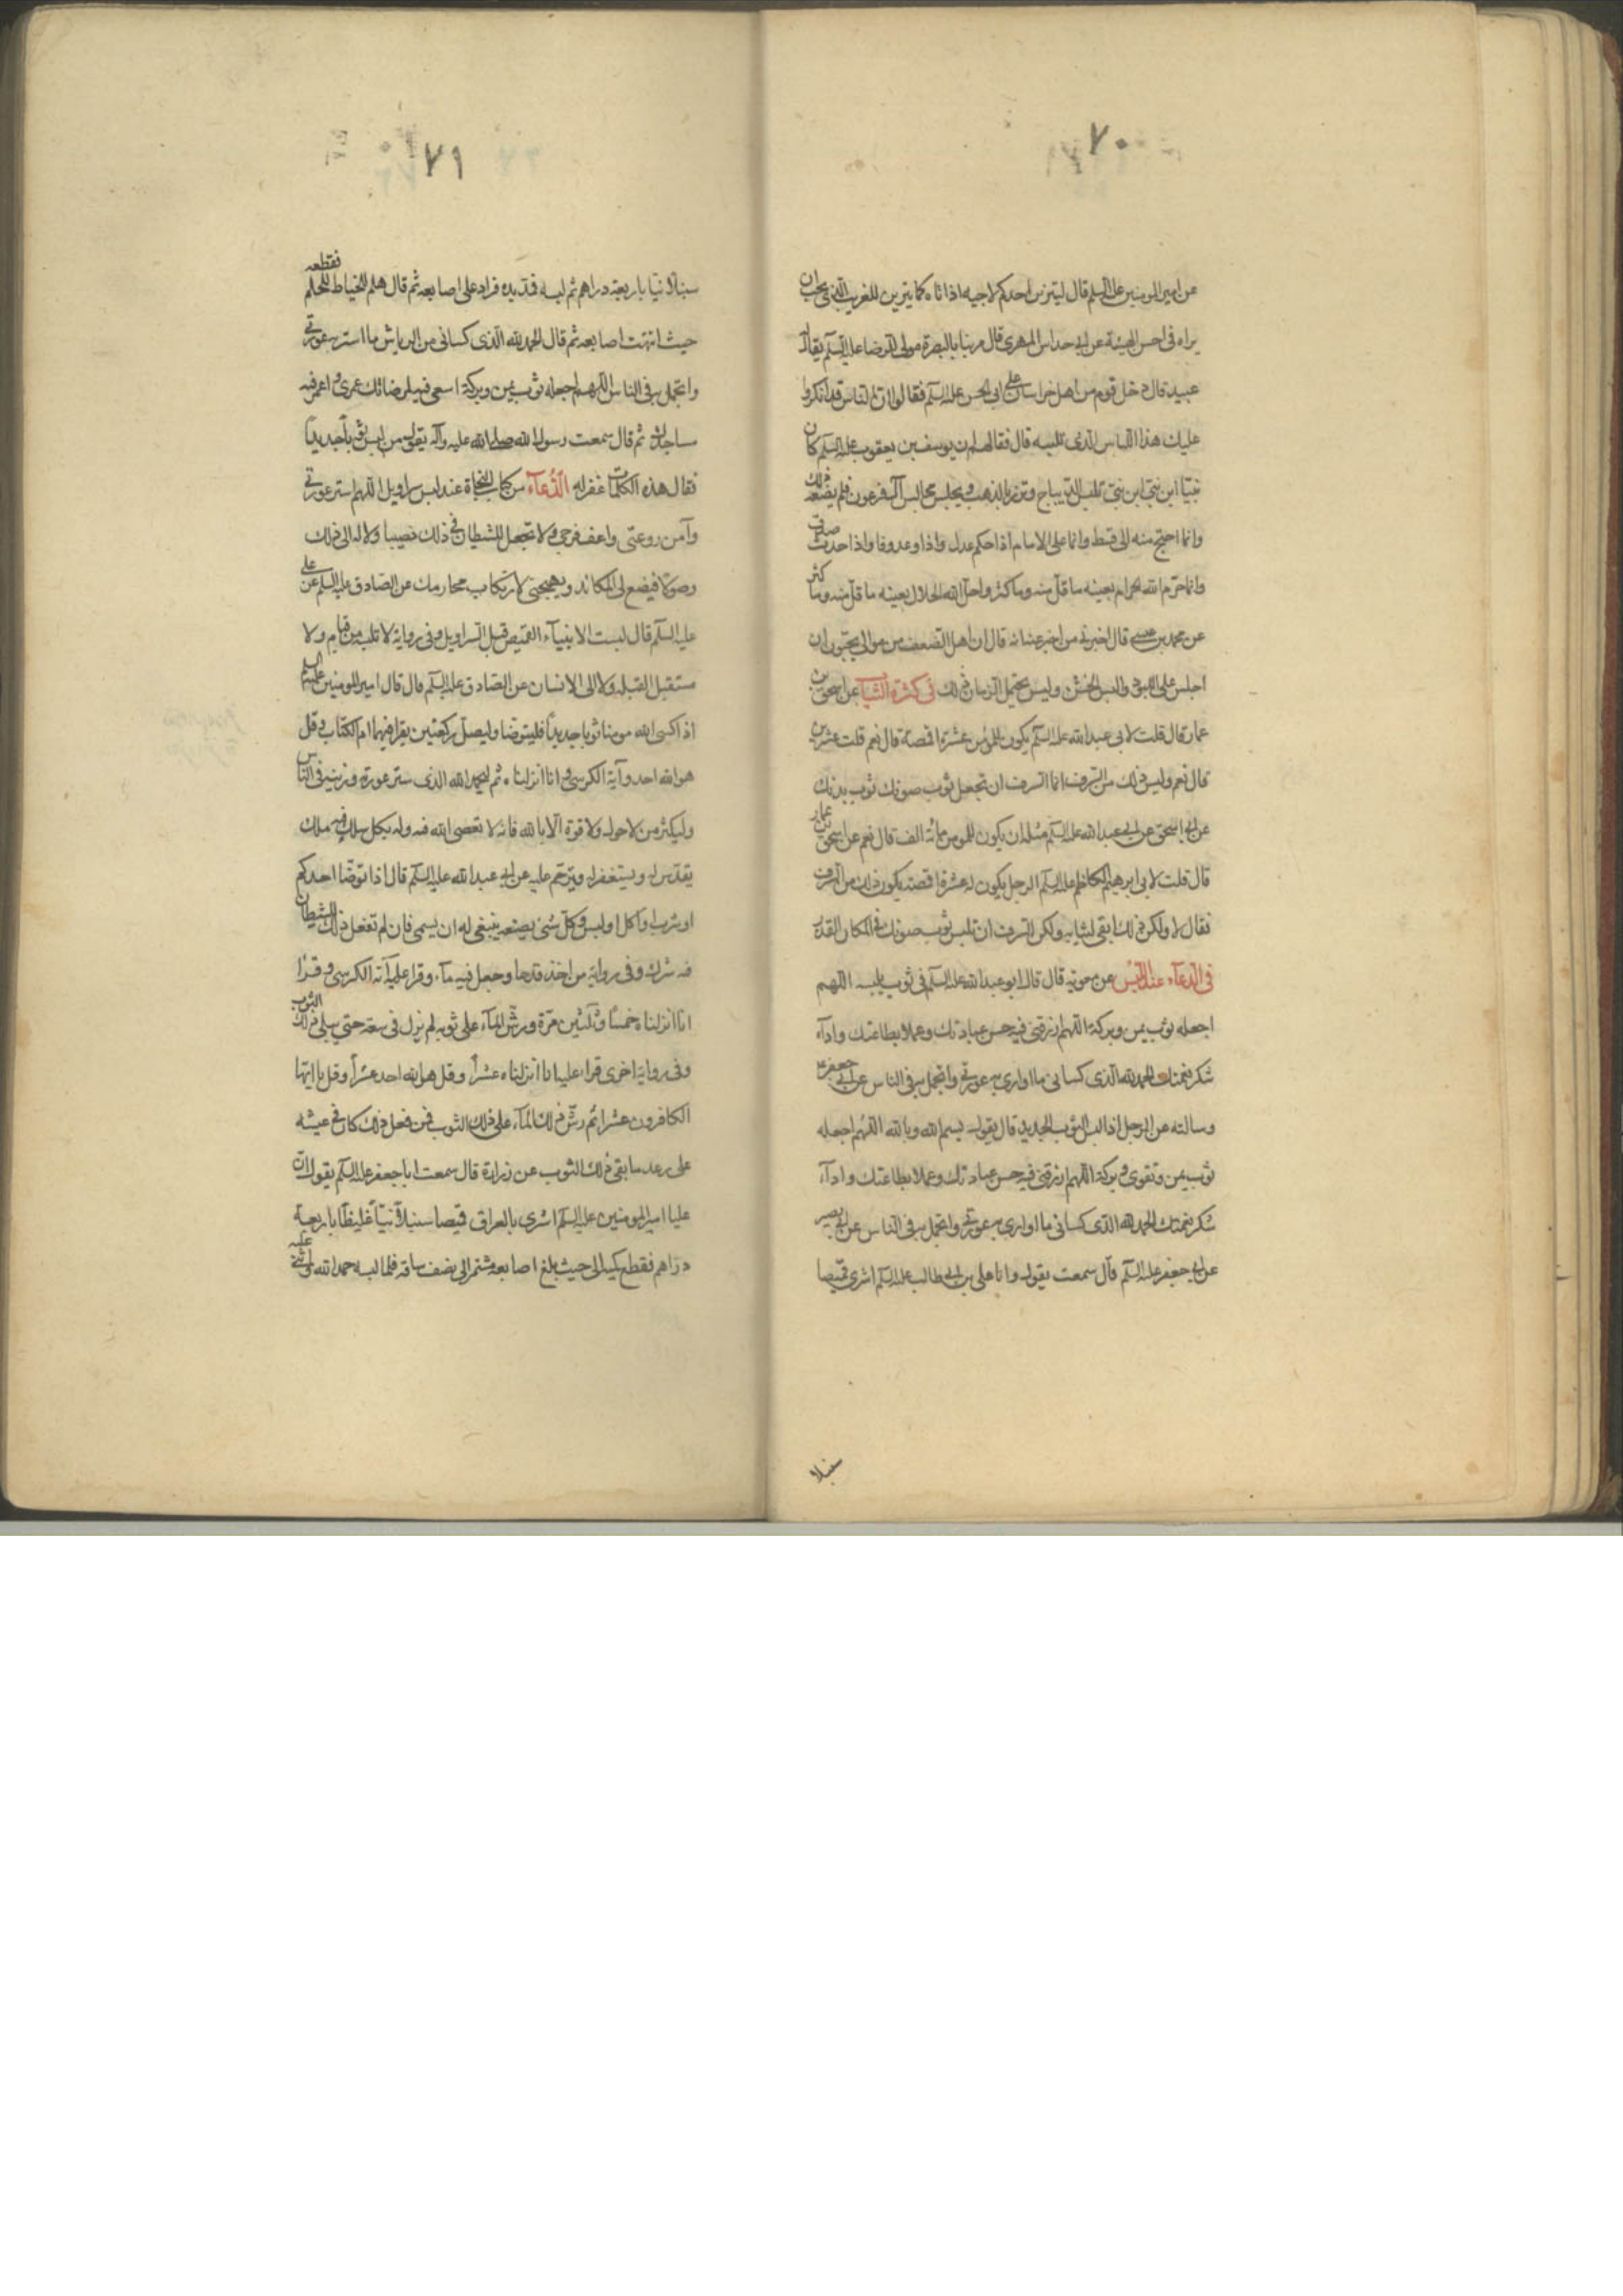 ٧٠
عن امير المومنين عليه السلم قال ليتزين احدكم لاخيه اذا اتاه كما يتزين للغريب الذي يحب ان
يراه في احسن الهيئة عن ابي خداش المهري قال مر بنا بالبصرة مولى للرضا عليه السلم يقال له
عبيد قال دخل قوم من اهل خراسان على ابي الحسن عليه السلم فقالوا له ان الناس قد انكروا
عليك هذا اللباس الذي تلبسه قال فقال لهم ان يوسف بن يعقوب عليه السلم كان
نبيا ابن نبي ابن نبي تلبس الديباج وتزر بالذهب ويجلس مجالس آل فرعون فلم يضعه ذلك
وانما احتيج منه الى قسط وانما على الامام اذا حكم عدل واذا وعد وفا واذا حدث صدق
وانما حرم الله الحرام بعينه ما قل منه وما كثر واحل الله الحلال بعينه ما قل منه وما كثر
عن محمد بن عيسى قال اخبرني من اخبر عنه انه قال ان اهل الضعف من موالي يحبون ان
اجلس على اللبود والبس الخشن وليس يحتمل الزمان ذلك في كثرة الثياب عن اسحق بن
عمار قال قلت لابي عبد الله عليه السلم يكون للمؤمن عشرة اقمصة قال نعم قلت عشرين
قال نعم وليس ذلك من السرف انما السرف ان تجعل ثوب صونك ثوب بذلتك
عن ابي اسحق عن ابي عبد الله عليه السلم مثله ان يكون للمومن مائة الف قال نعم عن اسحق بن عمار
قال قلت لابي ابرهيم الكاظم عليه السلم الرجل يكون له عشرة اقمصة يكون ذلك من السرف
فقال لا ولكن ذلك ابقى لثيابه ولكن السرف ان تلبس ثوب صونك في المكان القذر
في الدعاء عند اللبس عن معوية قال قال ابو عبد الله عليه السلم في ثوب يلبسه اللهم
اجعله ثوب يمن وبركة اللهم ارزقني فيه حسن عبادتك وعملا بطاعتك واداء
شكر نعمتك الحمد لله الذي كساني ما اواري به عورتي واتجمل به في الناس عن ابي جعفر ع
وسالته عن الرجل اذا لبس الثوب الجديد قال يقول بسم الله وبالله اللهم اجعله
ثوب يمن وتقوى وبركة اللهم ارزقني فيه حسن عبادتك وعملا بطاعتك واداء
شكر نعمتك الحمد لله الذي كساني ما اواري به عورتي واتجمل به في الناس عن ابي بصير
عن ابي جعفر عليه السلم قال سمعت يقول وانا على بن ابي طالب عليه السلم اشرى قميصا
سنبلا
٧١
سنبلانيا باربعة دراهم ثم لبسه فمد يده فزاد على اصابعه ثم قال هلم للخياط للجلم فقطعه
حيث انتهت اصابعه ثم قال الحمد لله الذي كساني من الرياش ما استر به عورتي
واتجمل به في الناس اللهم اجعله ثوب يمن وبركة اسعى فيه لمرضاتك عمري واعمر فيه
مساجدك ثم قال سمعت رسول الله صلى الله عليه وآله يقول من لبس ثوبا جديدا
فقال هذه الكلمات غفر له الدعاء من كتاب النجاة عند لبس سراويل اللهم استر عورتي
وآمن روعتي واعف فرجي ولا تجعل للشيطان في ذلك نصيبا ولا له الى ذلك
وصولا فيضع لي المكائد ويهيجني لارتكاب محارمك عن الصادق عليه السلم عن علي
عليه السلم قال لبست الانبياء القميص قبل السراويل وفي رواية لا تلبسه من قيام ولا
مستقبل القبلة ولا الى الانسان عن الصادق عليه السلم قال قال امير المومنين عليه السلم
اذا كسى الله مومنا ثوبا جديدا فليتوضا وليصل ركعتين يقرا فيهما ام الكتاب وقل
هو الله احد وآية الكرسي وانا انزلناه ثم ليحمد الله الذي ستر عورته وزينه في الناس
وليكثر من لا حول ولا قوة الا بالله فانه لا تعصى الله فيه وله بكل سلك فيه ملك
يقدس له ويستغفر له ويترحم عليه عن ابي عبد الله عليه السلم قال اذا توضا احدكم
او شرب او اكل او لبس وكل شئ يصنعه ينبغي له ان يسمي فان لم تفعل ذلك للشيطان
فيه شرك وفي رواية من اخذ قدحا وجعل فيه ماء وقرا عليه آية الكرسي وقرا
انا انزلناه خمسا وثلثين مرة ورش الماء على ثوبه لم يزل في سعة حتى يبلى ذلك الثوب
وفي رواية اخرى قراء عليه انا انزلناه عشرا وقل هو الله احد عشرا وقل يا ايها
الكافرون عشرا ثم رش ذلك الماء على ذلك الثوب فمن فعل ذلك كان في عيشه
على رغد ما بقي ذلك الثوب عن زرارة قال سمعت ابا جعفر عليه السلم يقول ان
عليا امير المومنين عليه السلم اشرى بالعراق قميصا سنبلانيا غليظا باربعة
دراهم فقطع كميه الى حيث بلغ اصابعه مشتمر الى نصف ساقه فلما لبسه حمد الله واثنى عليه